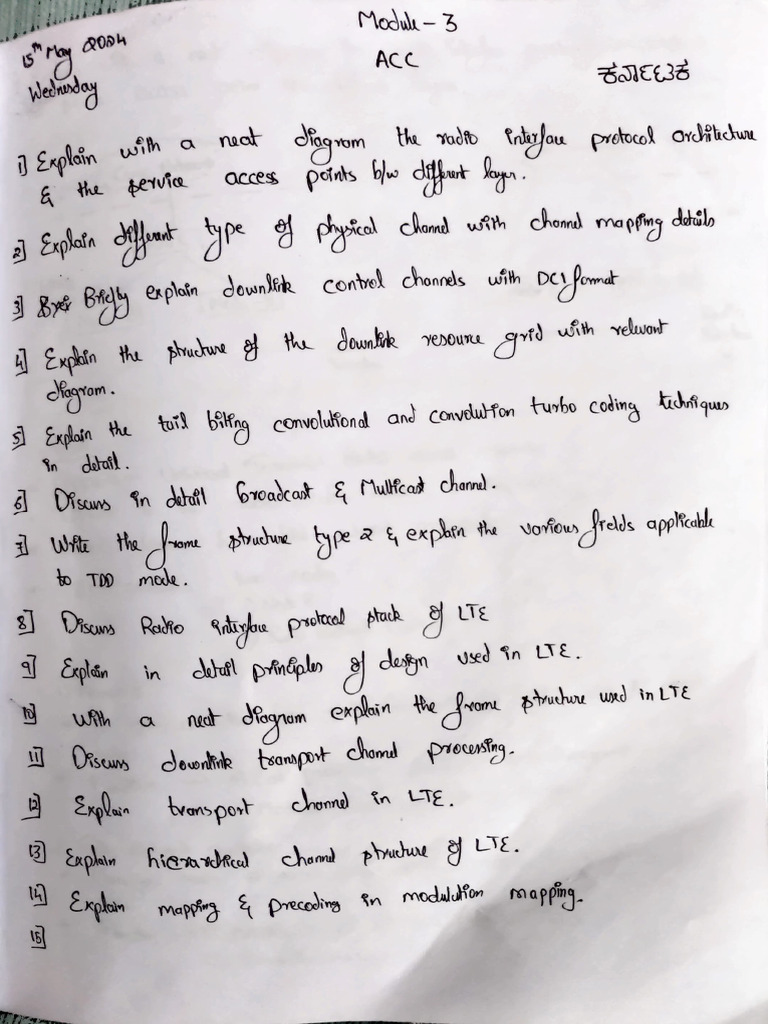 Module - 3
15th May 2024
ACC
Wednesday
ಕರ್ನಾಟಕ
1] Explain with a neat diagram the radio interface protocol architecture
& the service access points b/w different layer.
2] Explain different type of physical channel with channel mapping details
3] Briefly explain downlink control channels with DCI format
4] Explain the structure of the downlink resource grid with relevant
diagram.
5] Explain the tail biting convolutional and convolution turbo coding techniques
in detail.
6] Discuss in detail broadcast & Multicast channel.
7] Write the frame structure type 2 & explain the various fields applicable
to TDD mode.
8] Discuss Radio interface protocol stack of LTE
9] Explain in detail principles of design used in LTE.
10] With a neat diagram explain the frame structure used in LTE
11] Discuss downlink transport channel processing.
12] Explain transport channel in LTE.
13] Explain hierarchical channel structure of LTE.
14] Explain mapping & precoding in modulution mapping.
15]